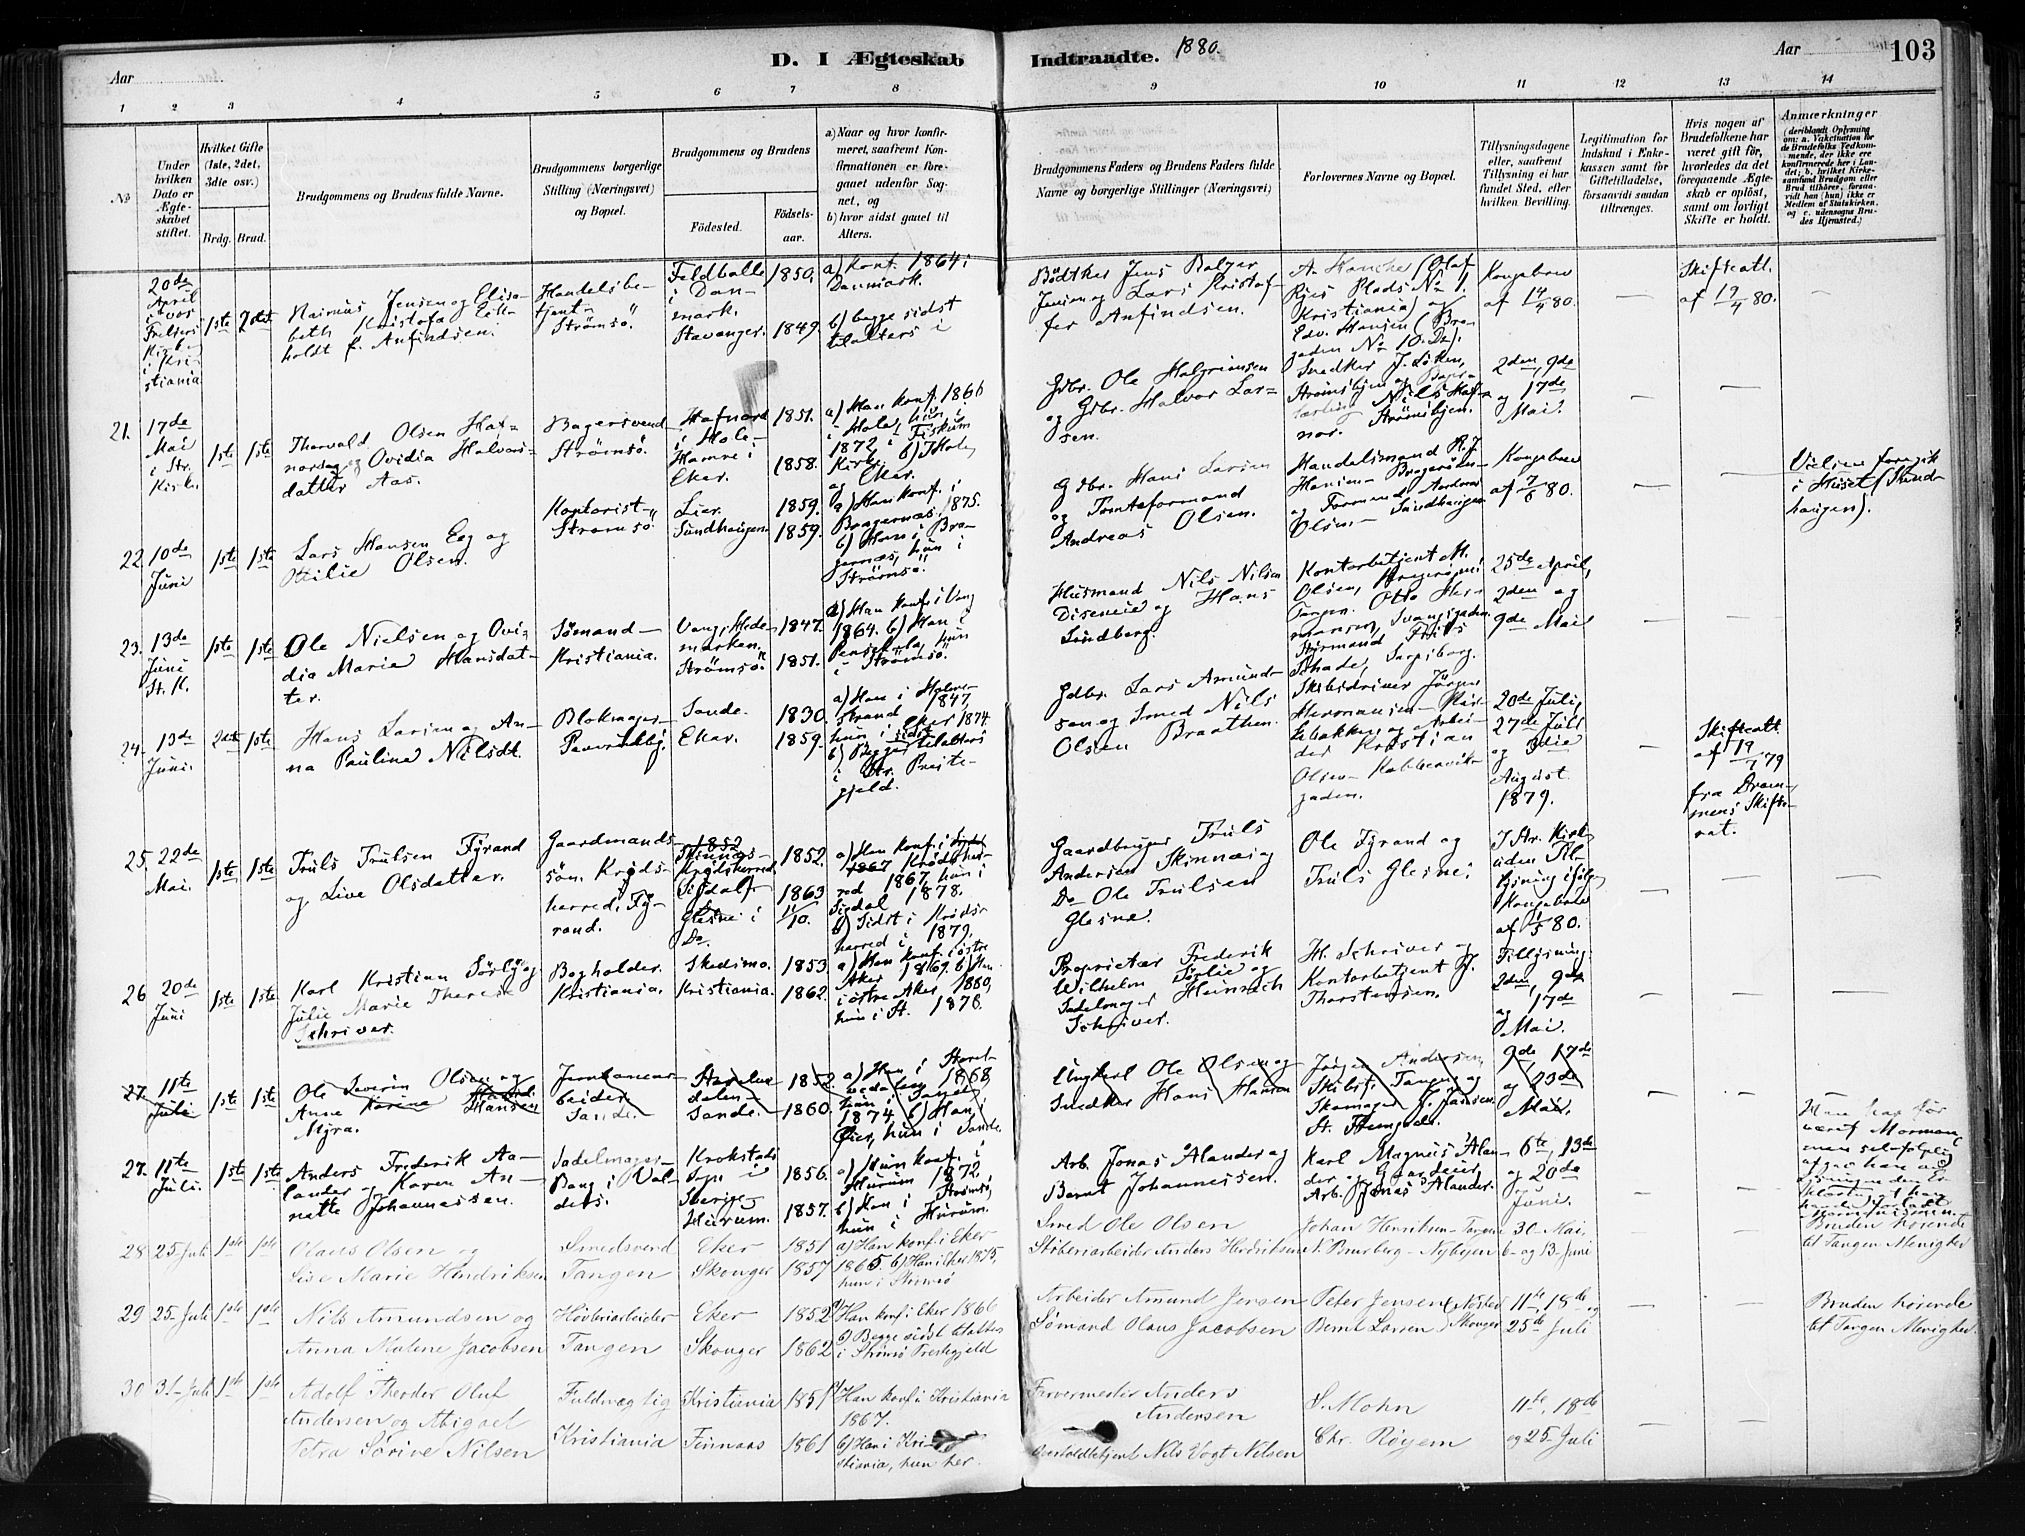 Aar
D. I Ægteskab
Indtraadte.
1880.
Aar
103
1 2 3 4 5 6 7 8 9 10 11 12 13 14
No
Under hvilken Dato er Ægteskabet stiftet.
Hvilket Gifte (1ste, 2det, 3die osv.)
Brdg. Brud.
Brudgommens og Brudens fulde Navne.
Brudgommens borgerlige Stilling (Næringsvei) og Bopæl.
Brudgommens og Brudens
Fødested.
Fødselsaar.
a) Naar og hvor konfirmeret, saafremt Konfirmationen er foregaaet udenfor Sognet, og
b) hvor sidst gaaet til Alters.
Brudgommens Faders og Brudens Faders fulde Navne og borgerlige Stillinger (Næringsvei)
Forlovernes Navne og Bopæl.
Tillysningsdagene eller, saafremt Tillysning ei har fundet Sted, efter hvilken Bevilling.
Legitimation for Indskud i Enkekassen samt for Giftetilladelse, forsaavidt saadan tiltrænges.
Hvis nogen af Brudefolkene har været gift før, hvorledes da det foregaaende Ægteskab er opløst, samt om lovligt Skifte er holdt.
Anmærkninger
(deriblandt Oplysning om: a. Vakcination for de Brudefolks Vedkommende, der ikke ere konfirmerede her i Landet; b. hvilket Kirkesamfund Brudgom eller Brud tilhører, forsaavidt han (hun) ikke er Medlem af Statskirken, og c. udensogns Brudes Hjemsted.)
20de April i vor Frelsers Kirke i Kristiania
1ste 2det
Rasmus Jensen og Elisabeth Kristofa Eilholdt f. Anfindsen.
Handelsbetjent Strömsö.
Feldballe i Danmark. 1850,
Stavanger. 1849.
a) konf. 1864 i Danmark.
b) begge sidst tilalters i
Bödtker Jens Balzer Jensen og Lars Kristoffer Anfindsen.
A. Hanche (Olaf Ryes Plads No 1. Kristiania) og Edv. Hansen (Bragaden No 10. Do).
Kongebrev af 14/4 80.
Skifteatt. af 19/4 80.
21. 17de Mai i Str. Kirke.
1ste 1ste
Thorvald Olsen Hafnorsdag og Ovidia Halvorsdatter Aas.
Bagersvend Strömsö.
Hafnord i Hole. 1851.
Hamre i Eker. 1858.
a) Han konf. 1866 i Hole, hun i 1872 i Fiskum Kirke. b) I Hole og Eker.
Gdbr. Ole Halgrimsen og Gdbr. Halvor Larsen.
Snedker J. Löken, Strömsbyen og Bagerlærling Nils Hafnor. Strömsbyen.
2den, 9de og 17de Mai.
22. 10de Juni
1ste 1ste
Lars Hansen Eeg og Otilie Olsen.
Kontorist Strömsö.
Lier. 1859.
Sundhaugen. 1859.
a) Han konf. i Bragernæs 1875. b) Han i Bragernæs, hun i Strömsö.
Gdbr. Hans Larsen og Tomteformand Andreas Olsen.
Handelsmand R. J. Hansen Bragernæs og Formand Andreas Olsen Sundhaugen
Kongebrev af 7/6 80.
Vielsen foregik i Huset (Sundhaugen).
23. 13de Juni St. K.
1ste 1ste
Ole Nielsen og Ovidia Marie Hansdatter.
Sömand Kristiania.
Vang, Hedemarken. 1847.
Strömsö. 1851.
a) Han konf. i Vang 1864. b) Han i Pensakola, hun i Strömsö.
Husmand Nils Nilsen Diseneie og Hans Lundberg.
Kontorbetjent M. Olsen, Tangen. Otto Hermansen, Svangsgaden Styrmand Frits Schade, Sarpsborg.
25de April, 2den og 9de Mai
24. 13de Juni.
2det 1ste
Hans Larsen og Anna Pauline Nilsdt.
Blokmager
Sande. 1830.
Eker. 1859.
a) Han i Holmestrand 1847, hun i Eker 1874. b) Begge sidst tilalters i Str. Prestegjeld.
Gdbr. Lars Amundsen og Smed Nils Olsen Braathen.
Skibsdriver Jörgen Hermansen og Arbeider Kristian Olsen Kobberviksgaden.
20de Juli, 27de Juli og 3die August 1879.
Skifteatt. af 19/7 79 fra Drammens Skifteret.
25. 22de Mai.
1ste 1ste
Truls Trulsen Fyrand og Live Olsdatter.
Gaardmandssön. Krödsherred, Fyrand.
1852 Skinnæs Krödsherred. 1852.
Sigdal Glesne i Do. 1863 11/10.
a) Han konf. i Sigdal 1867 Krödsherred 1867, hun i Sigdal 1878. b) Sidst i Krödsherred i 1879.
Gaardbruger Truls Andersen Skinnæs og Do Ole Trulsen Glesne.
Ole Fyrand og Truls Glesne.
I Str. Kirke uden Tillysning ifölge Kongebrev af 1/5 80.
26 20de Juni
1ste 1ste
Karl Kristian Sörlie og Julie Marie Therese Schriver.
Bogholder. Kristiania.
Skedsmo. 1853.
Kristiania. 1862.
a) Han konf. i östre Aker 1869. b) Han i östre Aker 1880, hun i St. 1878.
Proprietær Frederik Wilhelm Sörlie og Sadelmager Heinrich Schriver.
H. Schriver og Kontorbetjent J. Thorstensen.
Tillysning. 2den, 9de og 17de Mai.
27. 11te Juli
1ste 1ste
Ole Severin Olsen og Anne Karine Hansen Myra.
Jernbanearbeider Sande.
1852.
Sande. 1860.
Ungkarl Ole Olsen og Snedker Hans Hansen
Jörgen Andersen, Skibsf. Tangen og Skomager J. Jansen. St.
9de, 17de og 23de Mai.
27. 11te Juli.
1ste 1ste
Anders Frederik Aalander og Karen Annette Johannessen.
Sadelmager Bang i Valders.
Krokstads Sogn i Sverige 1856.
Hurum. 1857.
a) Hun konf. i Hurum 1872. b) Han i Strömsö, hun i Hurum.
Arb. Jonas Alander og Bernt Johannessen.
Karl Magnus Alander, Gaardeier, Arb. Jonas Alander.
6te, 13de og 20de Juni.
28 25 Juli 1ste 1ste
Olaus Olsen og Lise Marie Hendriksen
Smedsvend Tangen
Eker 1851
Skouger 1857
a) Han konf. i Eker 1865. b) Han i Eker 1875, hun i Strömsö
Smed Ole Olsen
Stöberiarbeider Anders Hendriksen
Johan Henriksen Tangen
N. Bruerberg Nybyen
30 Mai, 6- og 13- Juni
Bruden hörende til Tangen Menighed
29 25 Juli 1ste 1ste
Nils Amundsen og Anna Malene Jacobsen
Hövleriarbeider Tangen
Eker 1852
Skouger 1862
a) Han konf. i Eker 1866
b) Begge sidst tilalters i Strömsö Prestegjeld
Arbeider Amund Jensen
Sömand Olaus Jacobsen
Peter Jensen (Nösted)
Bernt Larsen, Skouger
11te, 18de og 25de Juli
Bruden hörende til Tangen Menighed.
30 31 Juli 1ste 1ste
Adolf Theodor Oluf Andersen og Abigael Petra Sörine Nilsen
Fuldmægtig Kristiania
Kristiania 1851
Finnaas 1861
a) Han konf. i Kristiania 1867.
b) Han i Kristiania, hun her.
Farvermester Anders Andersen
Overtoldbetjent Nils Vogt Nilsen
S. Mohn
Chr. Röyem
11te, 18de og 25 Juli